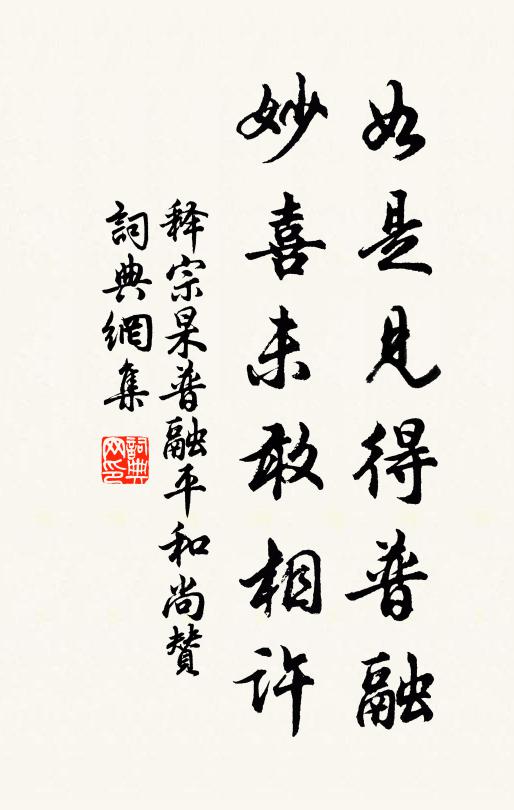 如是見得普融
妙喜未敢相許
释宗杲普融平和尚贊
詞典網集
詞典網印